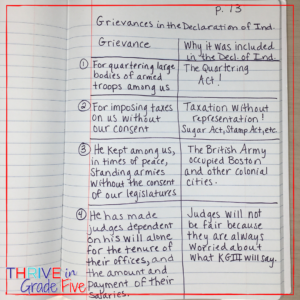 P. 13
Grievances in the Declaration of Ind.
Grievance
Why it was included
in the Decl. of Ind.
① For quartering large
bodies of armed
troops among us
The Quartering
Act!
② For imposing taxes
on us without
our consent
Taxation without
representation!
Sugar Act, Stamp Act, etc.
③ He kept among us,
in times of peace,
standing armies
without the consent
of our legislatures
The British Army
occupied Boston
and other colonial
cities.
④ He has made
judges dependent
on his will alone
for the tenure of
their offices, and
the amount and
payment of their
salaries.
Judges will not
be fair because
they are always
worried about
what KGIII will say.
THRIVE in
Grade Five